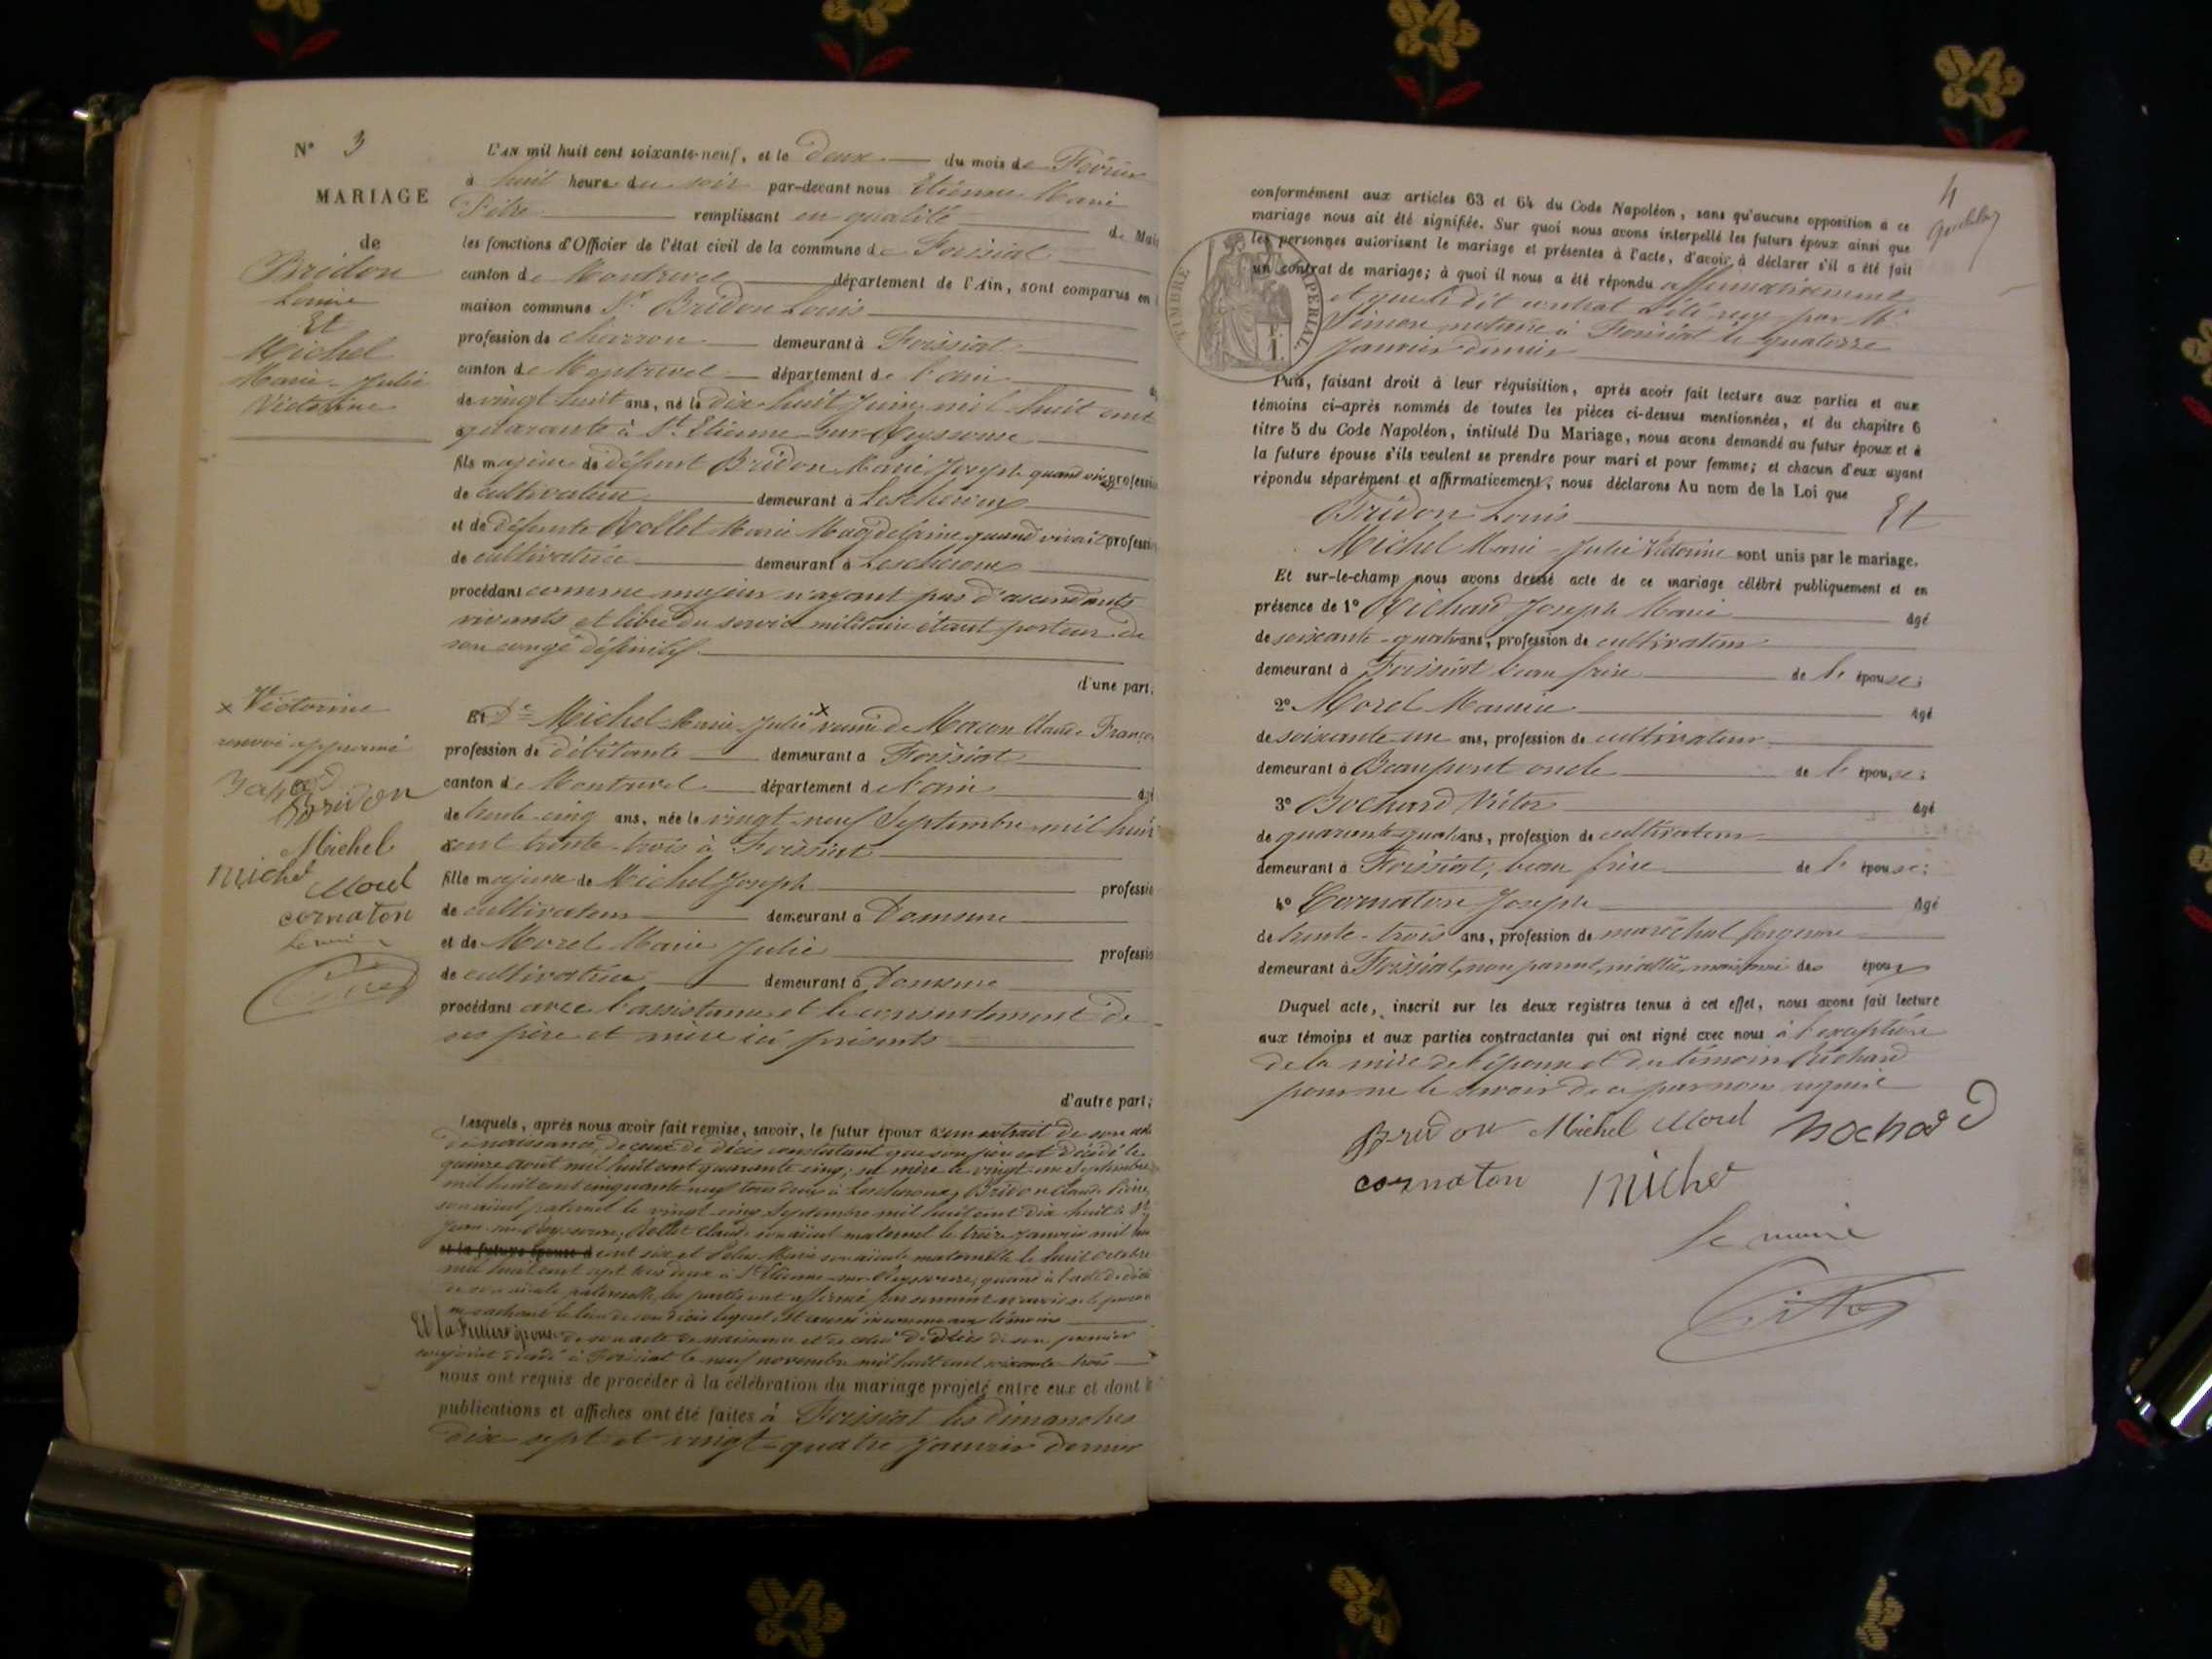 N° 3
MARIAGE
de
Bridon
Louis
Et
Michel
Marie-Julie
Victorine
L'an mil huit cent soixante-neuf, et le deux du mois de Février
à huit heure du soir par-devant nous Etienne Marie
remplissant en qualité de Mai
les fonctions d'Officier de l'état civil de la commune de Foissiat
canton de Montrevel département de l'Ain, sont comparus en l
maison commune Sr Bridon Louis
profession de charron demeurant à Foissiat
canton de Montrevel département de l'ain
de vingt huit ans, né le dix huit Juin mil huit cent
quarante à St Etienne-sur-Reyssouze
fils majeur de défunt Bridon Marie Joseph quand vivait professi
de cultivateur demeurant à Lescheroux
et de défunte Rollet Marie Magdelaine quand vivait professi
de cultivatrice demeurant à Lescheroux
procédant comme majeur n'ayant pas d'ascendants
vivants et libre du service militaire étant porteur de
son congé définitif
d'une part;
x Victorine
renvoi approuvé
Bochard
Bridon
Michel
Michel
Morel
cornaton
Le maire
Et De Michel Marie-Julie x veuve de Macon Claude Franço
profession de débitante demeurant à Foissiat
canton de Montrevel département de l'ain âgé
de trente-cinq ans, née le vingt-neuf Septembre mil huit
cent trente-trois à Foissiat
fille majeure de Michel Joseph professio
de cultivateur demeurant à Domsure
et de Morel Marie Julie professio
de cultivatrice demeurant à Domsure
procédant avec l'assistance et le consentement de
ses père et mère ici présents
d'autre part;
Lesquels, après nous avoir fait remise, savoir, le futur époux d'un extrait de son acte
de naissance, de ceux de décès constatant que son père est décédé le
quinze août mil huit cent quarante cinq; sa mère le vingt-un Septembre
mil huit cent cinquante neuf tous deux à Lescheroux, Bridon Claude Pierre,
son aïeul paternel le vingt-cinq Septembre mil huit cent dix huit à St
Jean-sur-Reyssouze; Rollet Claude son aïeul maternel le treize Janvier mil huit
et la future épouse d cent six et Marie son aïeule maternelle le huit octobre
mil huit cent sept tous deux à St Etienne-sur-Reyssouze; quand à l'acte de décès
de son aïeule paternelle les parties ont affirmé par serment n'avoir pu le
ne sachant le lieu de son décès lequel est aussi inconnu aux témoins
Et la future épouse de son acte de naissance et de celui de décès de son premier
conjoint décédé à Foissiat le neuf novembre mil huit cent soixante trois
nous ont requis de procéder à la célébration du mariage projeté entre eux et dont l
publications et affiches ont été faites à Foissiat les dimanches
dix-sept et vingt-quatre Janvier dernier
4
conformément aux articles 63 et 64 du Code Napoléon, sans qu'aucune opposition à ce
mariage nous ait été signifiée. Sur quoi nous avons interpellé les futurs époux ainsi que
les personnes autorisant le mariage et présentes à l'acte, d'avoir à déclarer s'il a été fait
un contrat de mariage; à quoi il nous a été répondu affirmativement
et que le dit contrat a été reçu par Me
Simon notaire à Foissiat le quatorze
Janvier dernier
TIMBRE IMPÉRIAL
1 F.
Puis, faisant droit à leur réquisition, après avoir fait lecture aux parties et aux
témoins ci-après nommés de toutes les pièces ci-dessus mentionnées, et du chapitre 6
titre 5 du Code Napoléon, intitulé Du Mariage, nous avons demandé au futur époux et à
la future épouse s'ils veulent se prendre pour mari et pour femme; et chacun d'eux ayant
répondu séparément et affirmativement, nous déclarons Au nom de la Loi que
Bridon Louis Et
Michel Marie-Julie Victorine sont unis par le mariage.
Et sur-le-champ nous avons dressé acte de ce mariage célébré publiquement et en
présence de 1° Richard Joseph Marie âgé
de soixante-quatre ans, profession de cultivateur
demeurant à Foissiat beau frère de l' épouse;
2° Morel Marie âgé
de soixante-un ans, profession de cultivateur
demeurant à Beaupont oncle de l' épouse;
3° Bochard Victor âgé
de quarante-quatre ans, profession de cultivateur
demeurant à Foissiat, beau frère de l' épouse;
4° Cornaton Joseph âgé
de trente-trois ans, profession de maréchal forgeron
demeurant à Foissiat, non parent, ni allié, mais ami des époux
Duquel acte, inscrit sur les deux registres tenus à cet effet, nous avons fait lecture
aux témoins et aux parties contractantes qui ont signé avec nous à l'exception
de la mère de l'épouse et du témoin Richard
pour ne le savoir de ce par nous requis
Bridon Michel Morel Bochard
cornaton Michel
Le maire